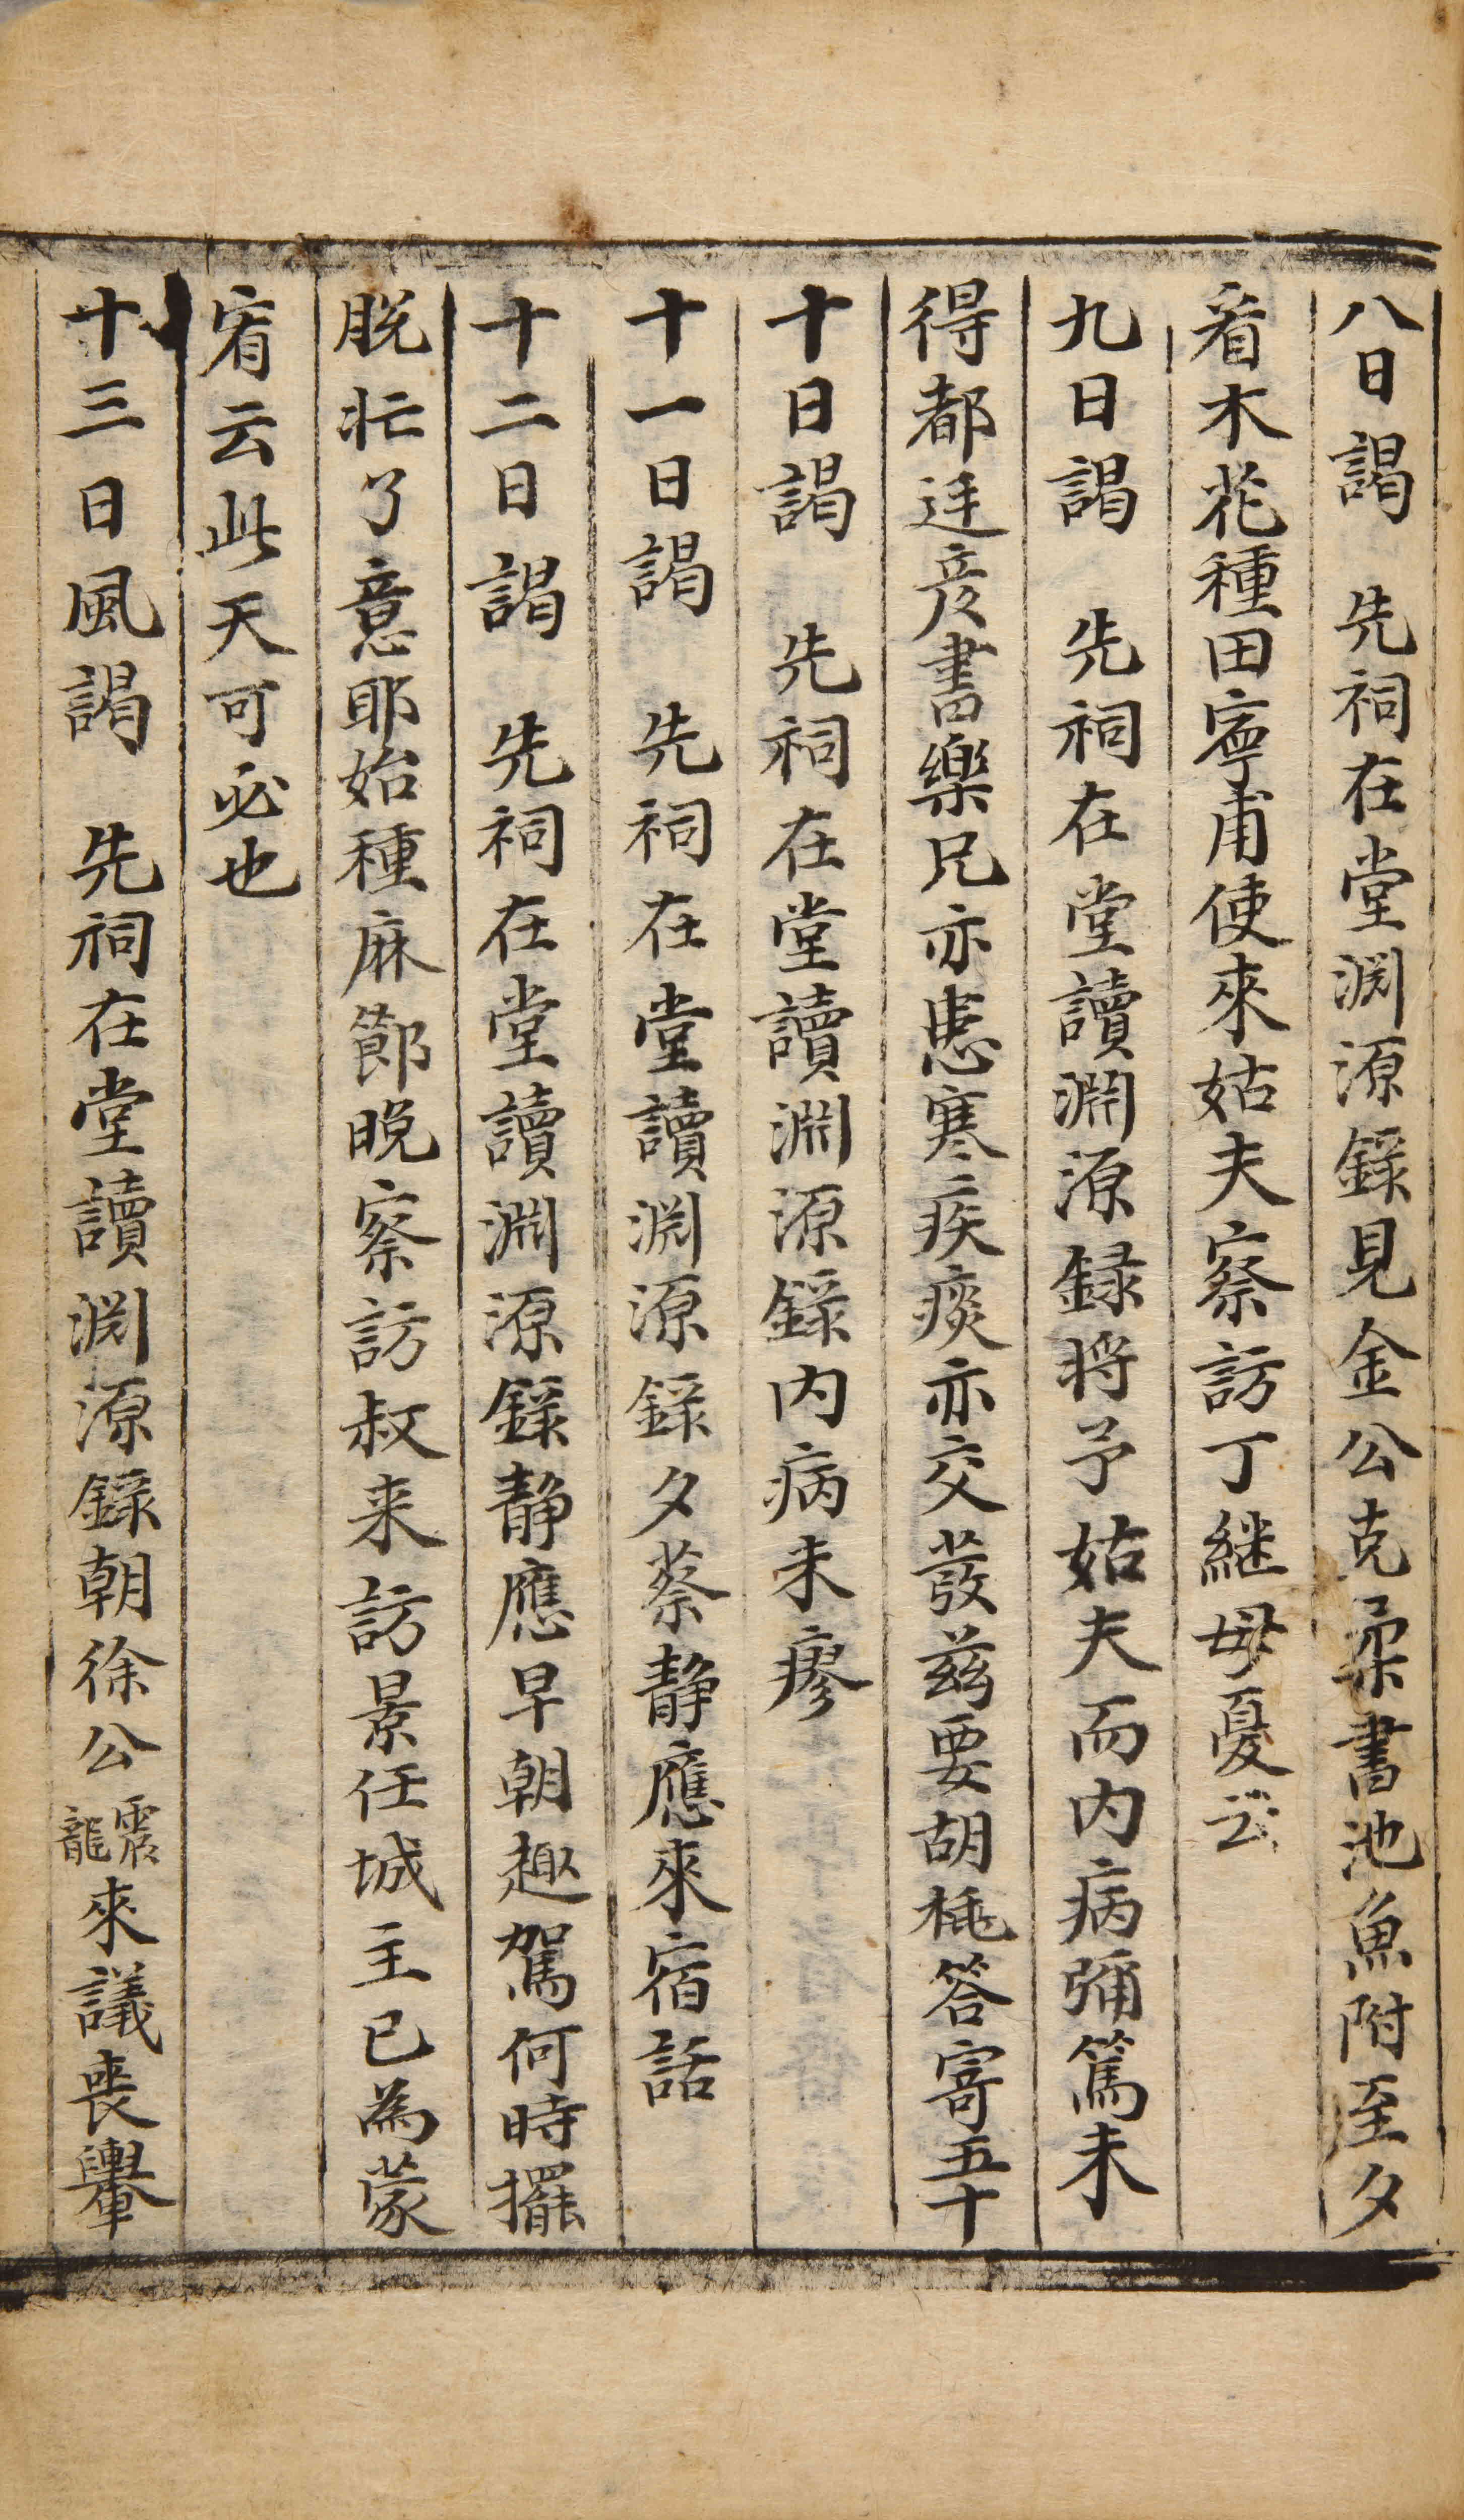 八日謁　先祠在堂淵源錄見金公克柔書池魚附至夕
看木花種田寧甫使來姑夫察訪丁継母憂云
九日謁　先祠在堂讀淵源録将予姑夫而內病彌篤未
得都廷彦書樂兄亦患寒疾痰亦交發茲要胡桃答寄五十
十日謁　先祠在堂讀淵源錄內病未瘳
十一日謁　先祠在堂讀淵源錄夕蔡静應來宿話
十二日謁　先祠在堂讀淵源錄静應早朝趣駕何時擺
脫忙了意耶始種麻節晩察訪叔来訪景任城主已為蒙
宥云此天可必也
十三日風謁　先祠在堂讀淵源錄朝徐公震龍來議喪轝